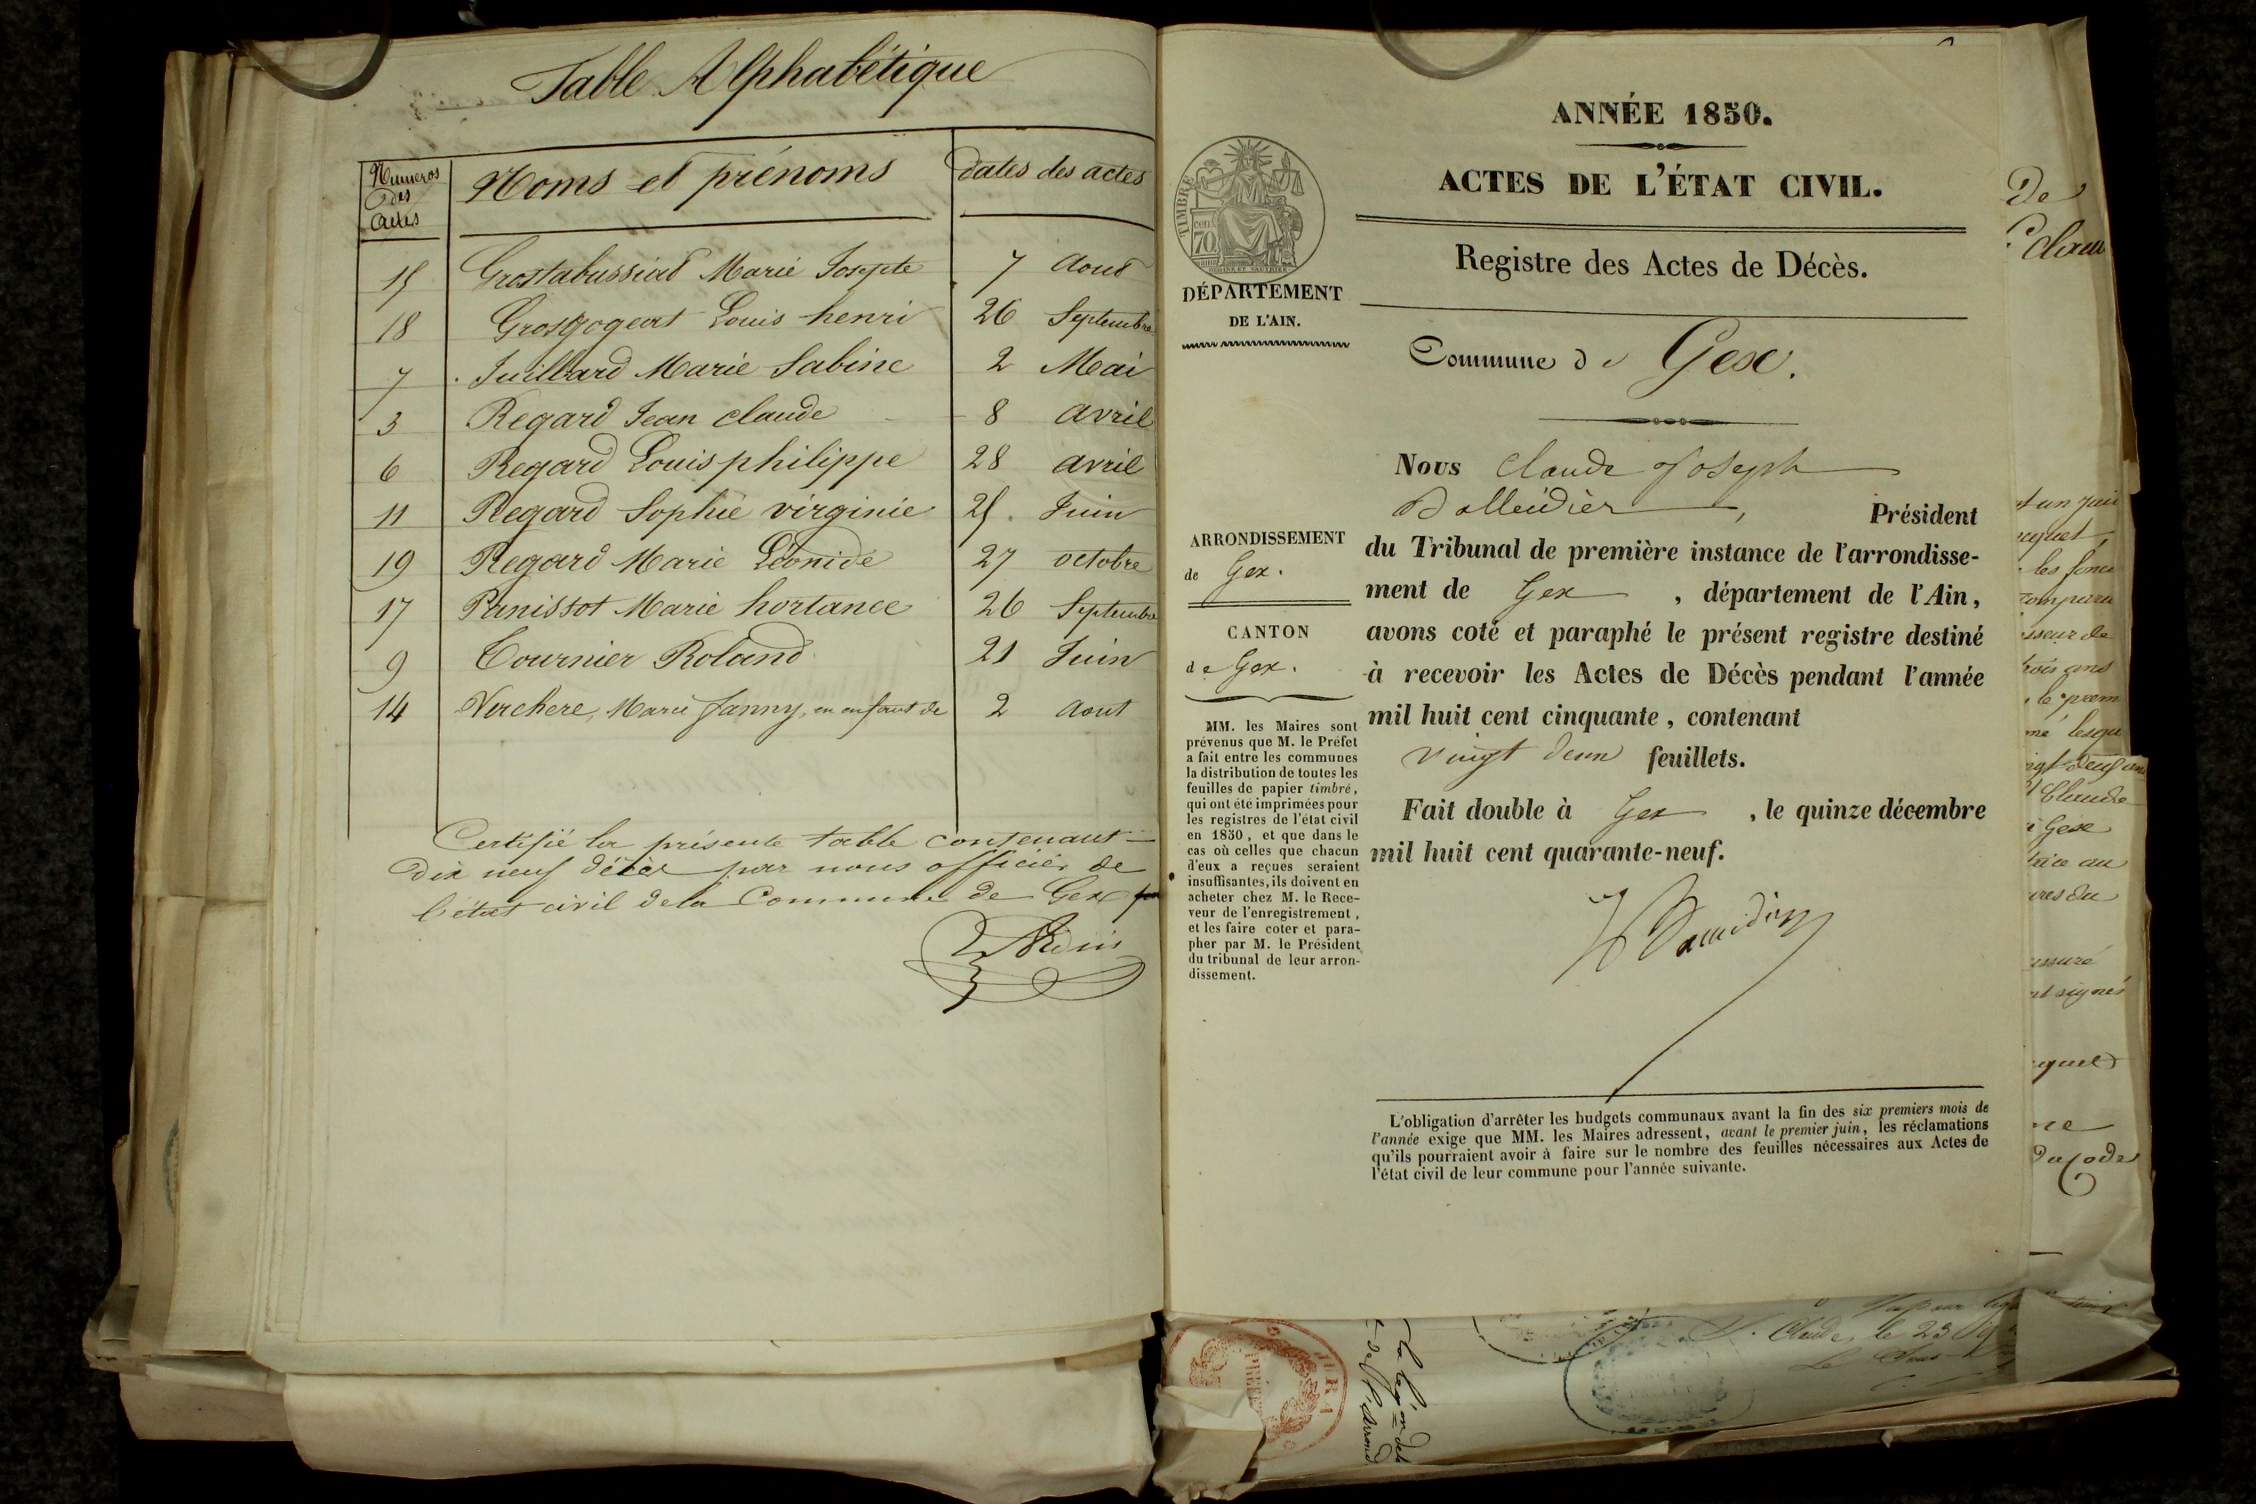 Table Alphabétique
Numeros des actes
Noms et prénoms
dates des actes
15 Grostabussiad Marie Josepte 7 Aout
18 Grosgogeat Louis henri 26 Septembre
7 Juillard Marie Sabine 2 Mai
3 Regard Jean claude 8 avril
6 Regard Louis philippe 28 avril
11 Regard Sophie virginie 25 Juin
19 Regard Marie Léonide 27 octobre
17 Panissot Marie hortance 26 Septembre
9 Tournier Roland 21 Juin
14 Verchere, Marie fanny, un enfant de 2 Aout
Certifié la présente table contenant
dix neuf décès par nous officier de
l'état civil de la Commune de Gex
ANNÉE 1850.
ACTES DE L'ÉTAT CIVIL.
Registre des Actes de Décès.
TIMBRE
70 cent
DÉPARTEMENT
DE L'AIN.
Commune de Gex.
ARRONDISSEMENT
de Gex.
CANTON
de Gex.
MM. les Maires sont
prévenus que M. le Préfet
a fait entre les communes
la distribution de toutes les
feuilles de papier timbré,
qui ont été imprimées pour
les registres de l'état civil
en 1850, et que dans le
cas où celles que chacun
d'eux a reçues seraient
insuffisantes, ils doivent en
acheter chez M. le Rece-
veur de l'enregistrement,
et les faire coter et para-
pher par M. le Président
du tribunal de leur arron-
dissement.
Nous Claude Joseph
Balleidier, Président
du Tribunal de première instance de l'arrondisse-
ment de Gex, département de l'Ain,
avons coté et paraphé le présent registre destiné
à recevoir les Actes de Décès pendant l'année
mil huit cent cinquante, contenant
vingt deux feuillets.
Fait double à Gex, le quinze décembre
mil huit cent quarante-neuf.
L'obligation d'arrêter les budgets communaux avant la fin des six premiers mois de
l'année exige que MM. les Maires adressent, avant le premier juin, les réclamations
qu'ils pourraient avoir à faire sur le nombre des feuilles nécessaires aux Actes de
l'état civil de leur commune pour l'année suivante.
De
les fonc
Claude
Gex
ures du
nt signés
du Code
JURA
Claude, le 23